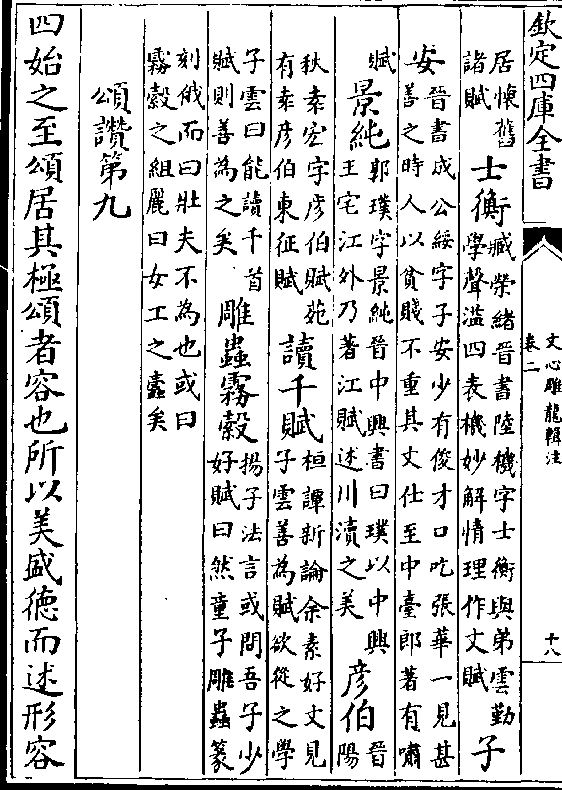 欽定四庫全書
文心雕龍輯注
卷二
十八
居懷舊
諸賦
士衡
臧榮緒晉書陸機字士衡與弟雲勤
學聲溢四表機妙解情理作文賦
子
安
晉書成公綏字子安少有俊才口吃張華一見甚
善之時人以貧賤不重其文仕至中臺郎著有嘯
賦
景純
郭璞字景純晉中興書曰璞以中興
王宅江外乃著江賦述川瀆之美
彥伯
晉
陽
秋袁宏字彥伯賦苑
有袁彥伯東征賦
讀千賦
桓譚新論余素好文見
子雲善為賦欲從之學
子雲曰能讀千首
賦則善為之矣
雕蟲霧縠
揚子法言或問吾子少
好賦曰然童子雕蟲篆
刻俄而曰壯夫不為也或曰
霧縠之組麗曰女工之蠹矣
頌讚第九
四始之至頌居其極頌者容也所以美盛德而述形容